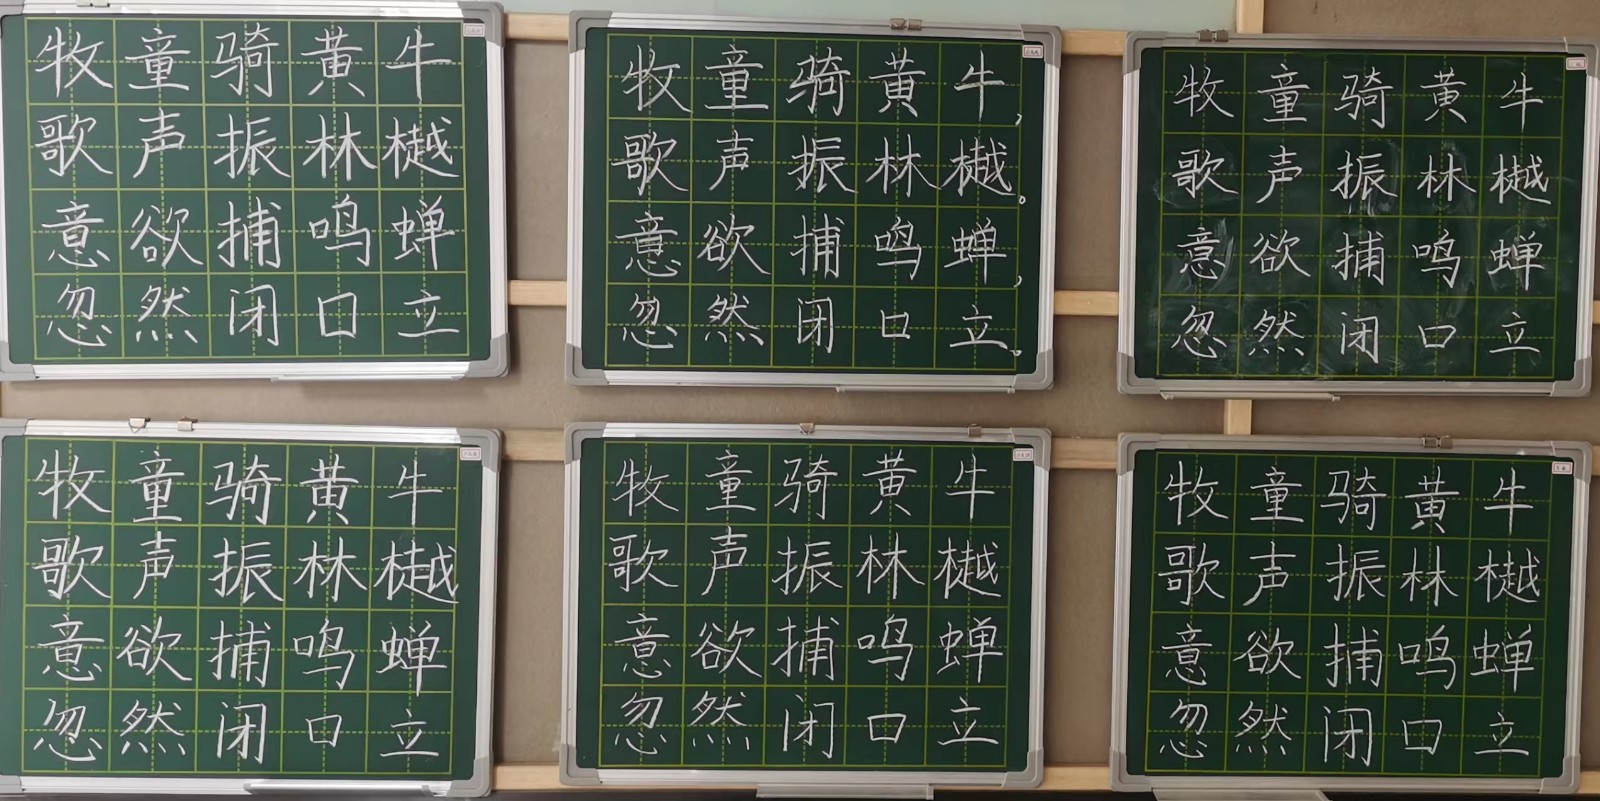 牧童骑黄牛
歌声振林樾
意欲捕鸣蝉
忽然闭口立
牧童骑黄牛，
歌声振林樾。
意欲捕鸣蝉，
忽然闭口立。
牧童骑黄牛
歌声振林樾
意欲捕鸣蝉
忽然闭口立
牧童骑黄牛
歌声振林樾
意欲捕鸣蝉
忽然闭口立
牧童骑黄牛
歌声振林樾
意欲捕鸣蝉
忽然闭口立
牧童骑黄牛
歌声振林樾
意欲捕鸣蝉
忽然闭口立